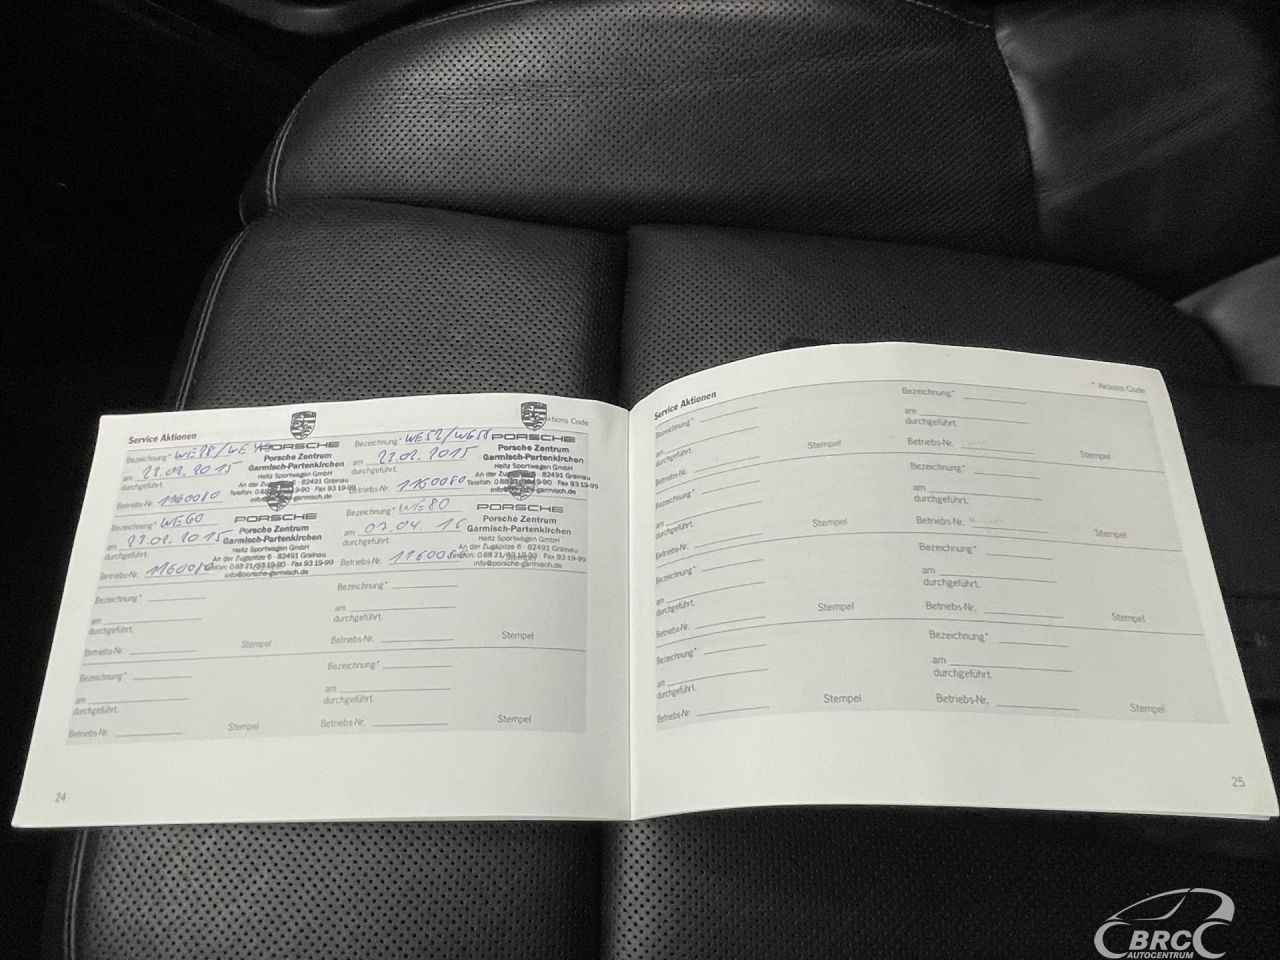 Service Aktionen
Bezeichnung*
PORSCHE
am 23.02.2015
durchgeführt.
Porsche Zentrum
Garmisch-Partenkirchen
Heitz Sportwagen GmbH
An der Zugspitze 6 · 82491 Grainau
Betriebs-Nr. 1160080
Aktions Code
Bezeichnung* WE52/WE58
PORSCHE
am 23.02.2015
durchgeführt.
Porsche Zentrum
Garmisch-Partenkirchen
Heitz Sportwagen GmbH
82491 Grainau
Fax 93 19-99
Betriebs-Nr. 1160080
info@porsche-garmisch.de
Bezeichnung* WE60
PORSCHE
am 23.02.2015
durchgeführt.
Porsche Zentrum
Garmisch-Partenkirchen
Heitz Sportwagen GmbH
An der Zugspitze 6 · 82491 Grainau
Telefon: 0 88 21/93 19-90 · Fax 93 19-99
info@porsche-garmisch.de
Betriebs-Nr. 1160080
Bezeichnung* WE80
PORSCHE
am 07.04.16
durchgeführt.
Porsche Zentrum
Garmisch-Partenkirchen
Heitz Sportwagen GmbH
An der Zugspitze 6 · 82491 Grainau
Telefon: 0 88 21/93 19-90 · Fax 93 19-99
info@porsche-garmisch.de
Betriebs-Nr. 1160080
Bezeichnung*
am
durchgeführt.
Betriebs-Nr. Stempel
Bezeichnung*
am
durchgeführt.
Betriebs-Nr. Stempel
Bezeichnung*
am
durchgeführt.
Betriebs-Nr. Stempel
Bezeichnung*
am
durchgeführt.
Betriebs-Nr. Stempel
24
Service Aktionen
* Aktions Code
Bezeichnung*
am
durchgeführt.
Betriebs-Nr. Stempel
Bezeichnung*
am
durchgeführt.
Betriebs-Nr. Stempel
Bezeichnung*
am
durchgeführt.
Betriebs-Nr. Stempel
Bezeichnung*
am
durchgeführt.
Betriebs-Nr. Stempel
Bezeichnung*
am
durchgeführt.
Betriebs-Nr. Stempel
Bezeichnung*
am
durchgeführt.
Betriebs-Nr. Stempel
Bezeichnung*
am
durchgeführt.
Betriebs-Nr. Stempel
Bezeichnung*
am
durchgeführt.
Betriebs-Nr. Stempel
25
BRC
AUTOCENTRUM